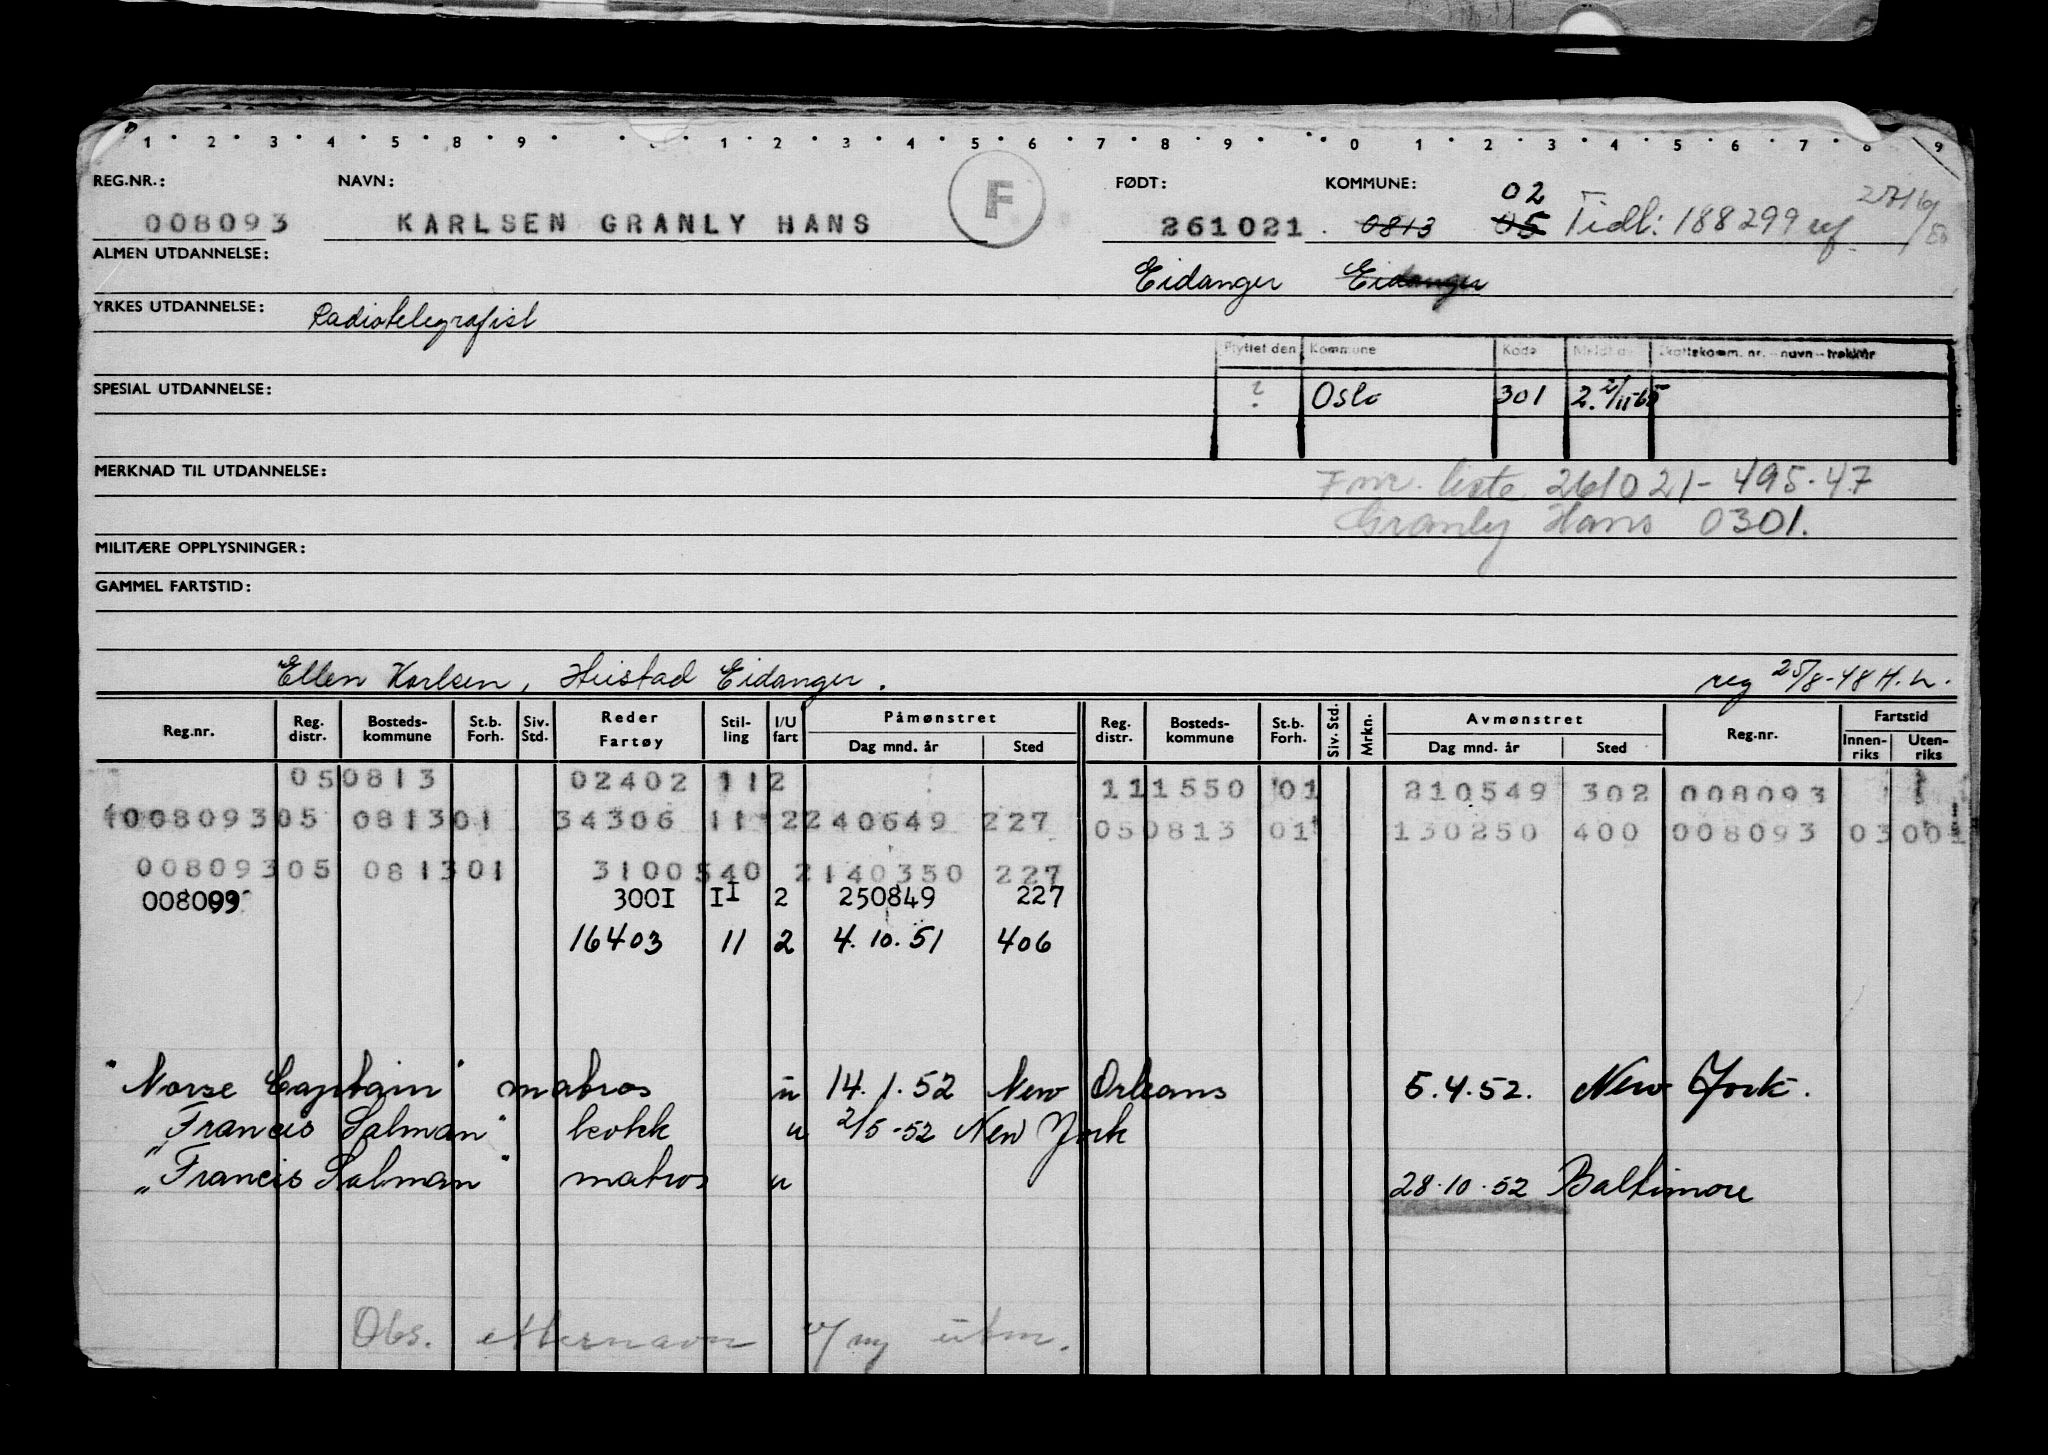 1 2 3 4 5 8 9 1 2 3 4 5 6 7 8 9 0 1 2 3 4 5 6 7 8 9
REG.NR.: NAVN: F FØDT: KOMMUNE: 02
008093 KARLSEN GRANLY HANS 261021. 0813 05 Tidl: 188299
ALMEN UTDANNELSE:
Eidanger Eidanger
YRKES UTDANNELSE: Radiotelegrafist
Flyttet den Kommune Kode Skattekomm. nr. - navn - trekknr
SPESIAL UTDANNELSE: ? Oslo 301 2. 2/11-65
MERKNAD TIL UTDANNELSE:
Fnr. liste 261021-495.47
Granly Hans 0301.
MILITÆRE OPPLYSNINGER:
GAMMEL FARTSTID:
Ellen Karlsen, Heistad Eidanger. reg 25/8-48 H.L.
Reg.nr. Reg. distr. Bosteds- kommune St.b. Forh. Siv. Std. Reder Fartøy Stil- ling I/U fart Påmønstret Dag mnd. år Sted Reg. distr. Bosteds- kommune St.b. Forh. Siv. Std. Mrkn. Avmønstret Dag mnd. år Sted Reg.nr. Fartstid Innen- riks Uten- riks
050813 02402 112 111550 01 210549 302 008093
00809305 081301 34306 11 2240649 227 050813 01 130250 400 008093 03001
00809305 081301 3100540 2140350 227
008093 300I II 2 250849 227
16403 11 2 4.10.51 406
"Norse Captain" matros u 14.1.52 New Orleans 5.4.52. New York.
"Francis Salman" kokk u 2/5-52 New York
"Francis Salman" matros u 28.10.52 Baltimore
Obs. etternavn v/ ny utm.